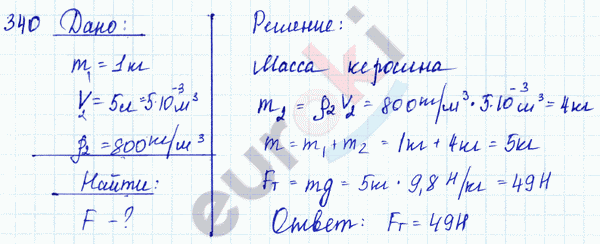 340 Дано:
m₁ = 1кг
V₂ = 5л = 5·10⁻³м³
ρ₂ = 800кг/м³
Найти:
F - ?
Решение:
Масса керосина
m₂ = ρ₂V₂ = 800кг/м³ · 5·10⁻³м³ = 4кг
m = m₁ + m₂ = 1кг + 4кг = 5кг
Fт = mg = 5кг · 9,8 Н/кг = 49Н
Ответ: Fт = 49Н
euroki